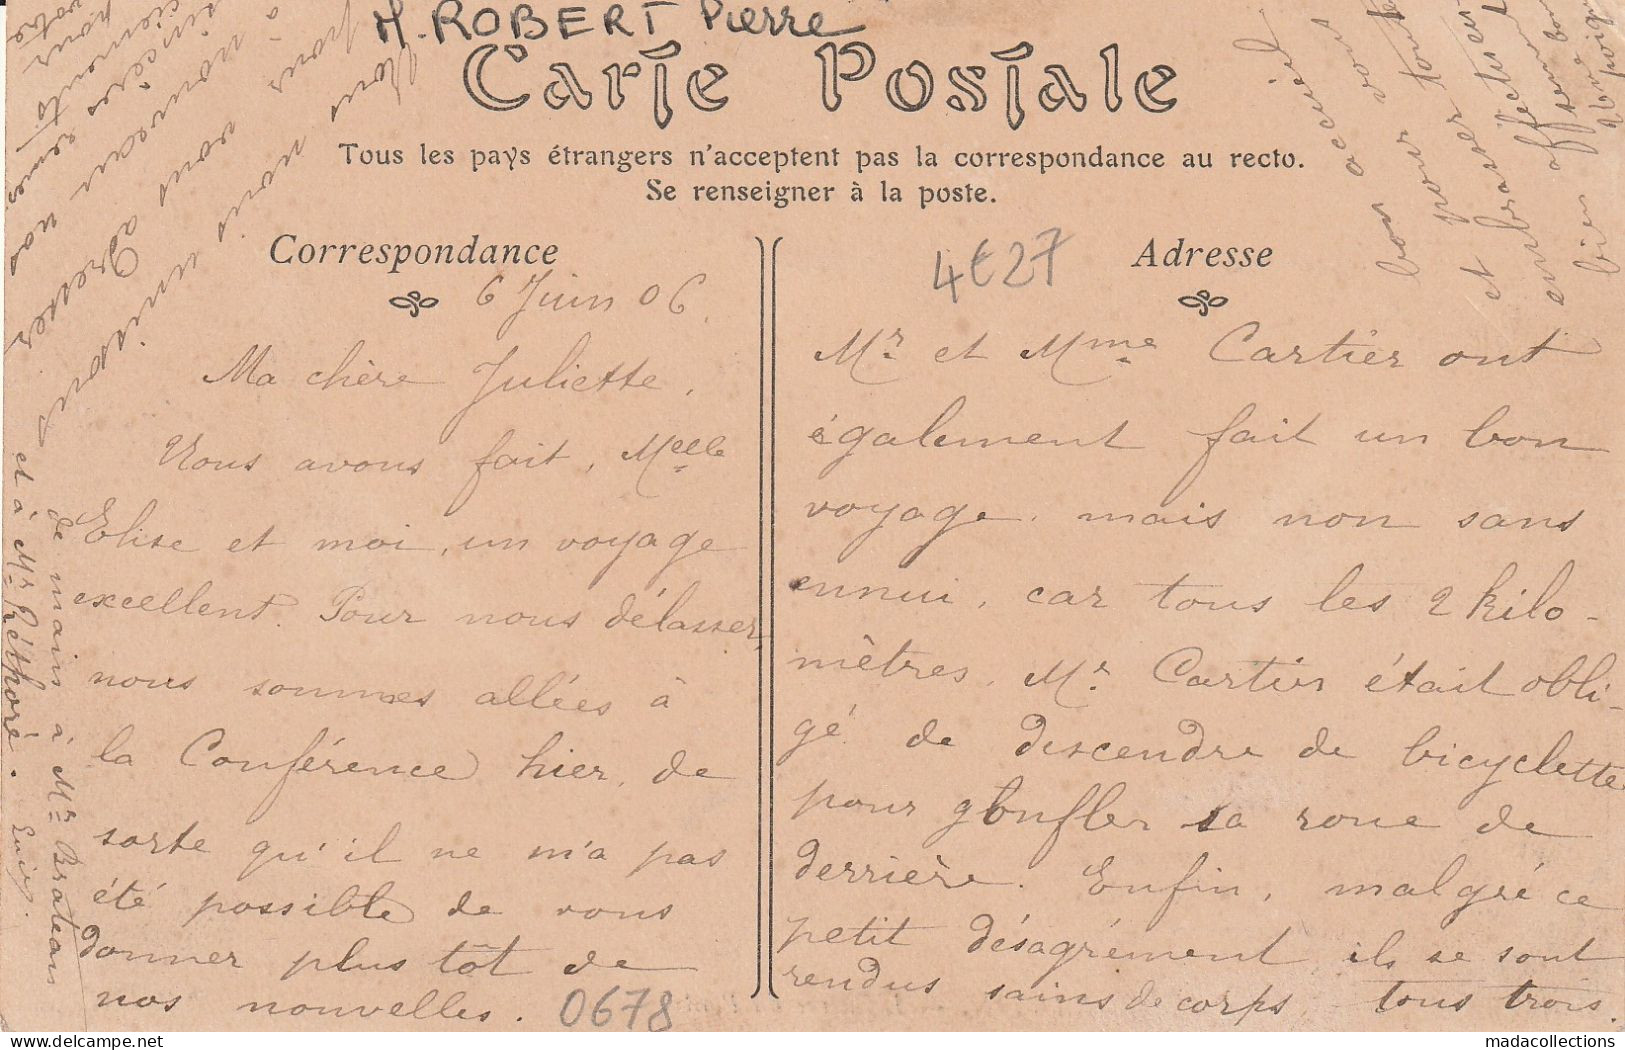 M. ROBERT Pierre
Carte Postale
Tous les pays étrangers n'acceptent pas la correspondance au recto.
Se renseigner à la poste.
Correspondance
6 Juin 06.
Ma chère Juliette,
Nous avons fait, Melle
Elise et moi, un voyage
excellent. Pour nous délasser,
nous sommes allées à
la Conférence hier, de
sorte qu'il ne m'a pas
été possible de vous
donner plus tôt de
nos nouvelles.
0678
4€27
Adresse
Mr et Mme Cartier ont
également fait un bon
voyage, mais non sans
ennui, car tous les 2 kilo-
mètres, Mr Cartier était obli-
gé de descendre de bicyclette
pour gonfler sa roue de
derrière. Enfin, malgré ce
petit désagrément, ils se sont
rendus sains de corps tous trois.
Nous nous unissons
pour vous adresser
à nouveau nos
sincères remer-
ciements
pour votre
bon accueil
pour vous
et embrasser
affectueu-
bien affemment
Une poign
de mains à Mr Brateau
et à Mr Réthoré.
madacollections
www.madacollections.com